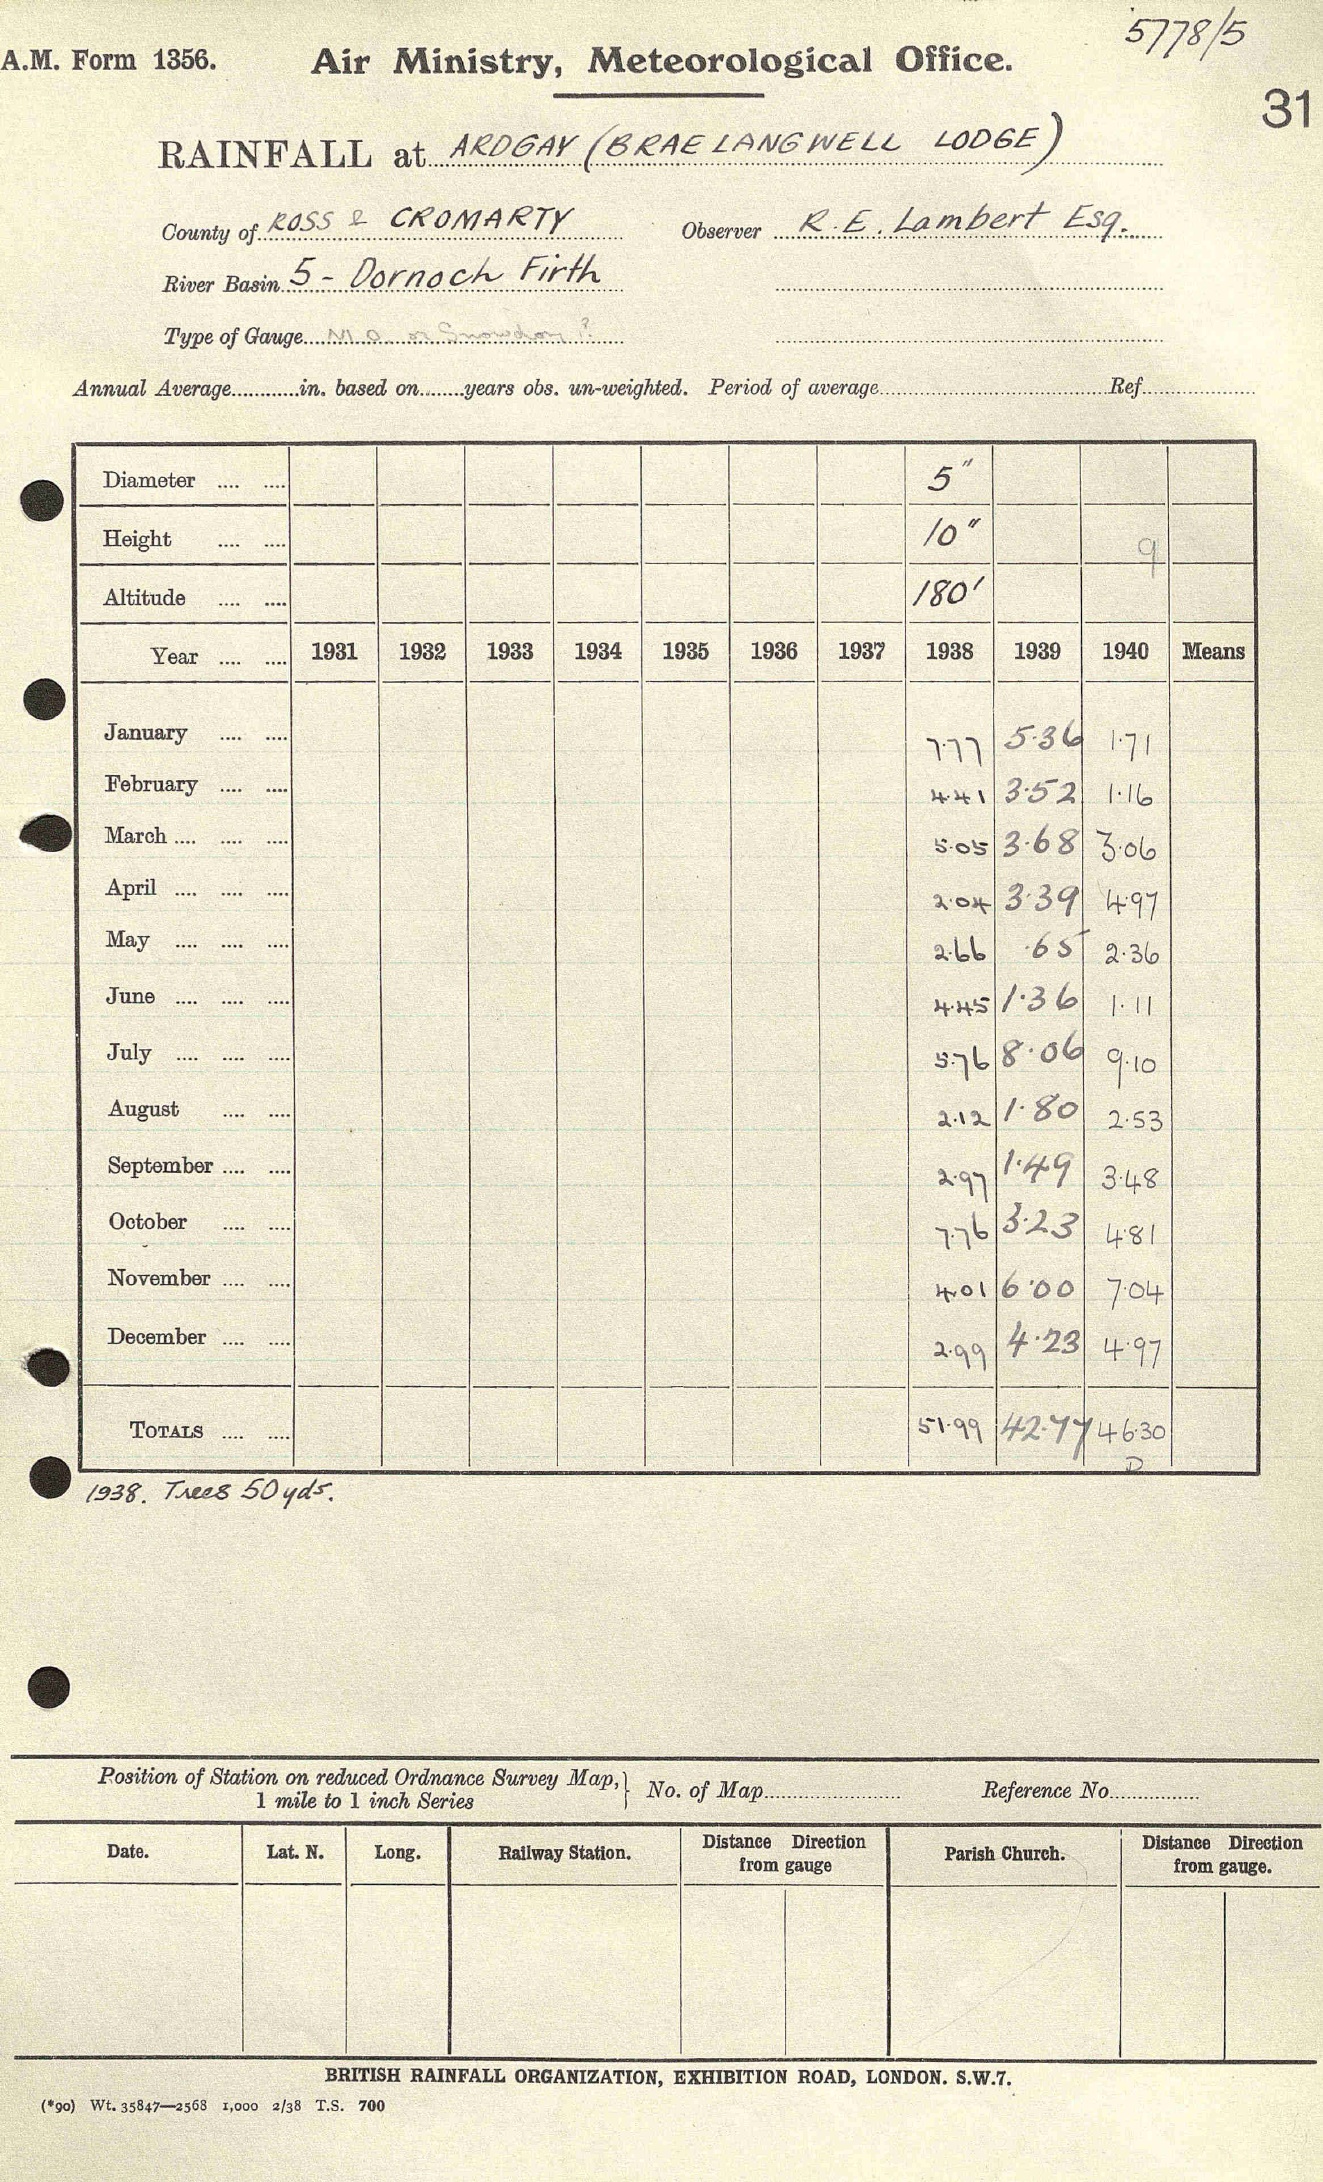 5778/5
A.M. Form 1356. Air Ministry, Meteorological Office.
31
RAINFALL at ARDGAY (BRAELANGWELL LODGE)
County of ROSS & CROMARTY Observer R.E. Lambert Esq.
River Basin 5 - Dornoch Firth
Type of Gauge M.O. or Snowdon ?
Annual Average............in. based on........years obs. un-weighted. Period of average........................................Ref....................
Diameter .... .... 5"
Height .... .... 10" 9
Altitude .... .... 180'
Year .... .... 1931 1932 1933 1934 1935 1936 1937 1938 1939 1940 Means
January .... .... 7.77 5.36 1.71
February .... .... 4.41 3.52 1.16
March .... .... .... 5.05 3.68 3.06
April .... .... .... 2.04 3.39 4.97
May .... .... .... 2.66 .65 2.36
June .... .... .... 4.45 1.36 1.11
July .... .... .... 5.76 8.06 9.10
August .... .... 2.12 1.80 2.53
September .... .... 2.97 1.49 3.48
October .... .... 7.76 3.23 4.81
November .... .... 4.01 6.00 7.04
December .... .... 2.99 4.23 4.97
TOTALS .... .... 51.99 42.77 46.30
D
1938. Trees 50 yds.
Position of Station on reduced Ordnance Survey Map, } No. of Map........................ Reference No................
1 mile to 1 inch Series
Date. Lat. N. Long. Railway Station. Distance Direction from gauge Parish Church. Distance Direction from gauge.
BRITISH RAINFALL ORGANIZATION, EXHIBITION ROAD, LONDON. S.W.7.
(*90) Wt. 35847—2568 1,000 2/38 T.S. 700